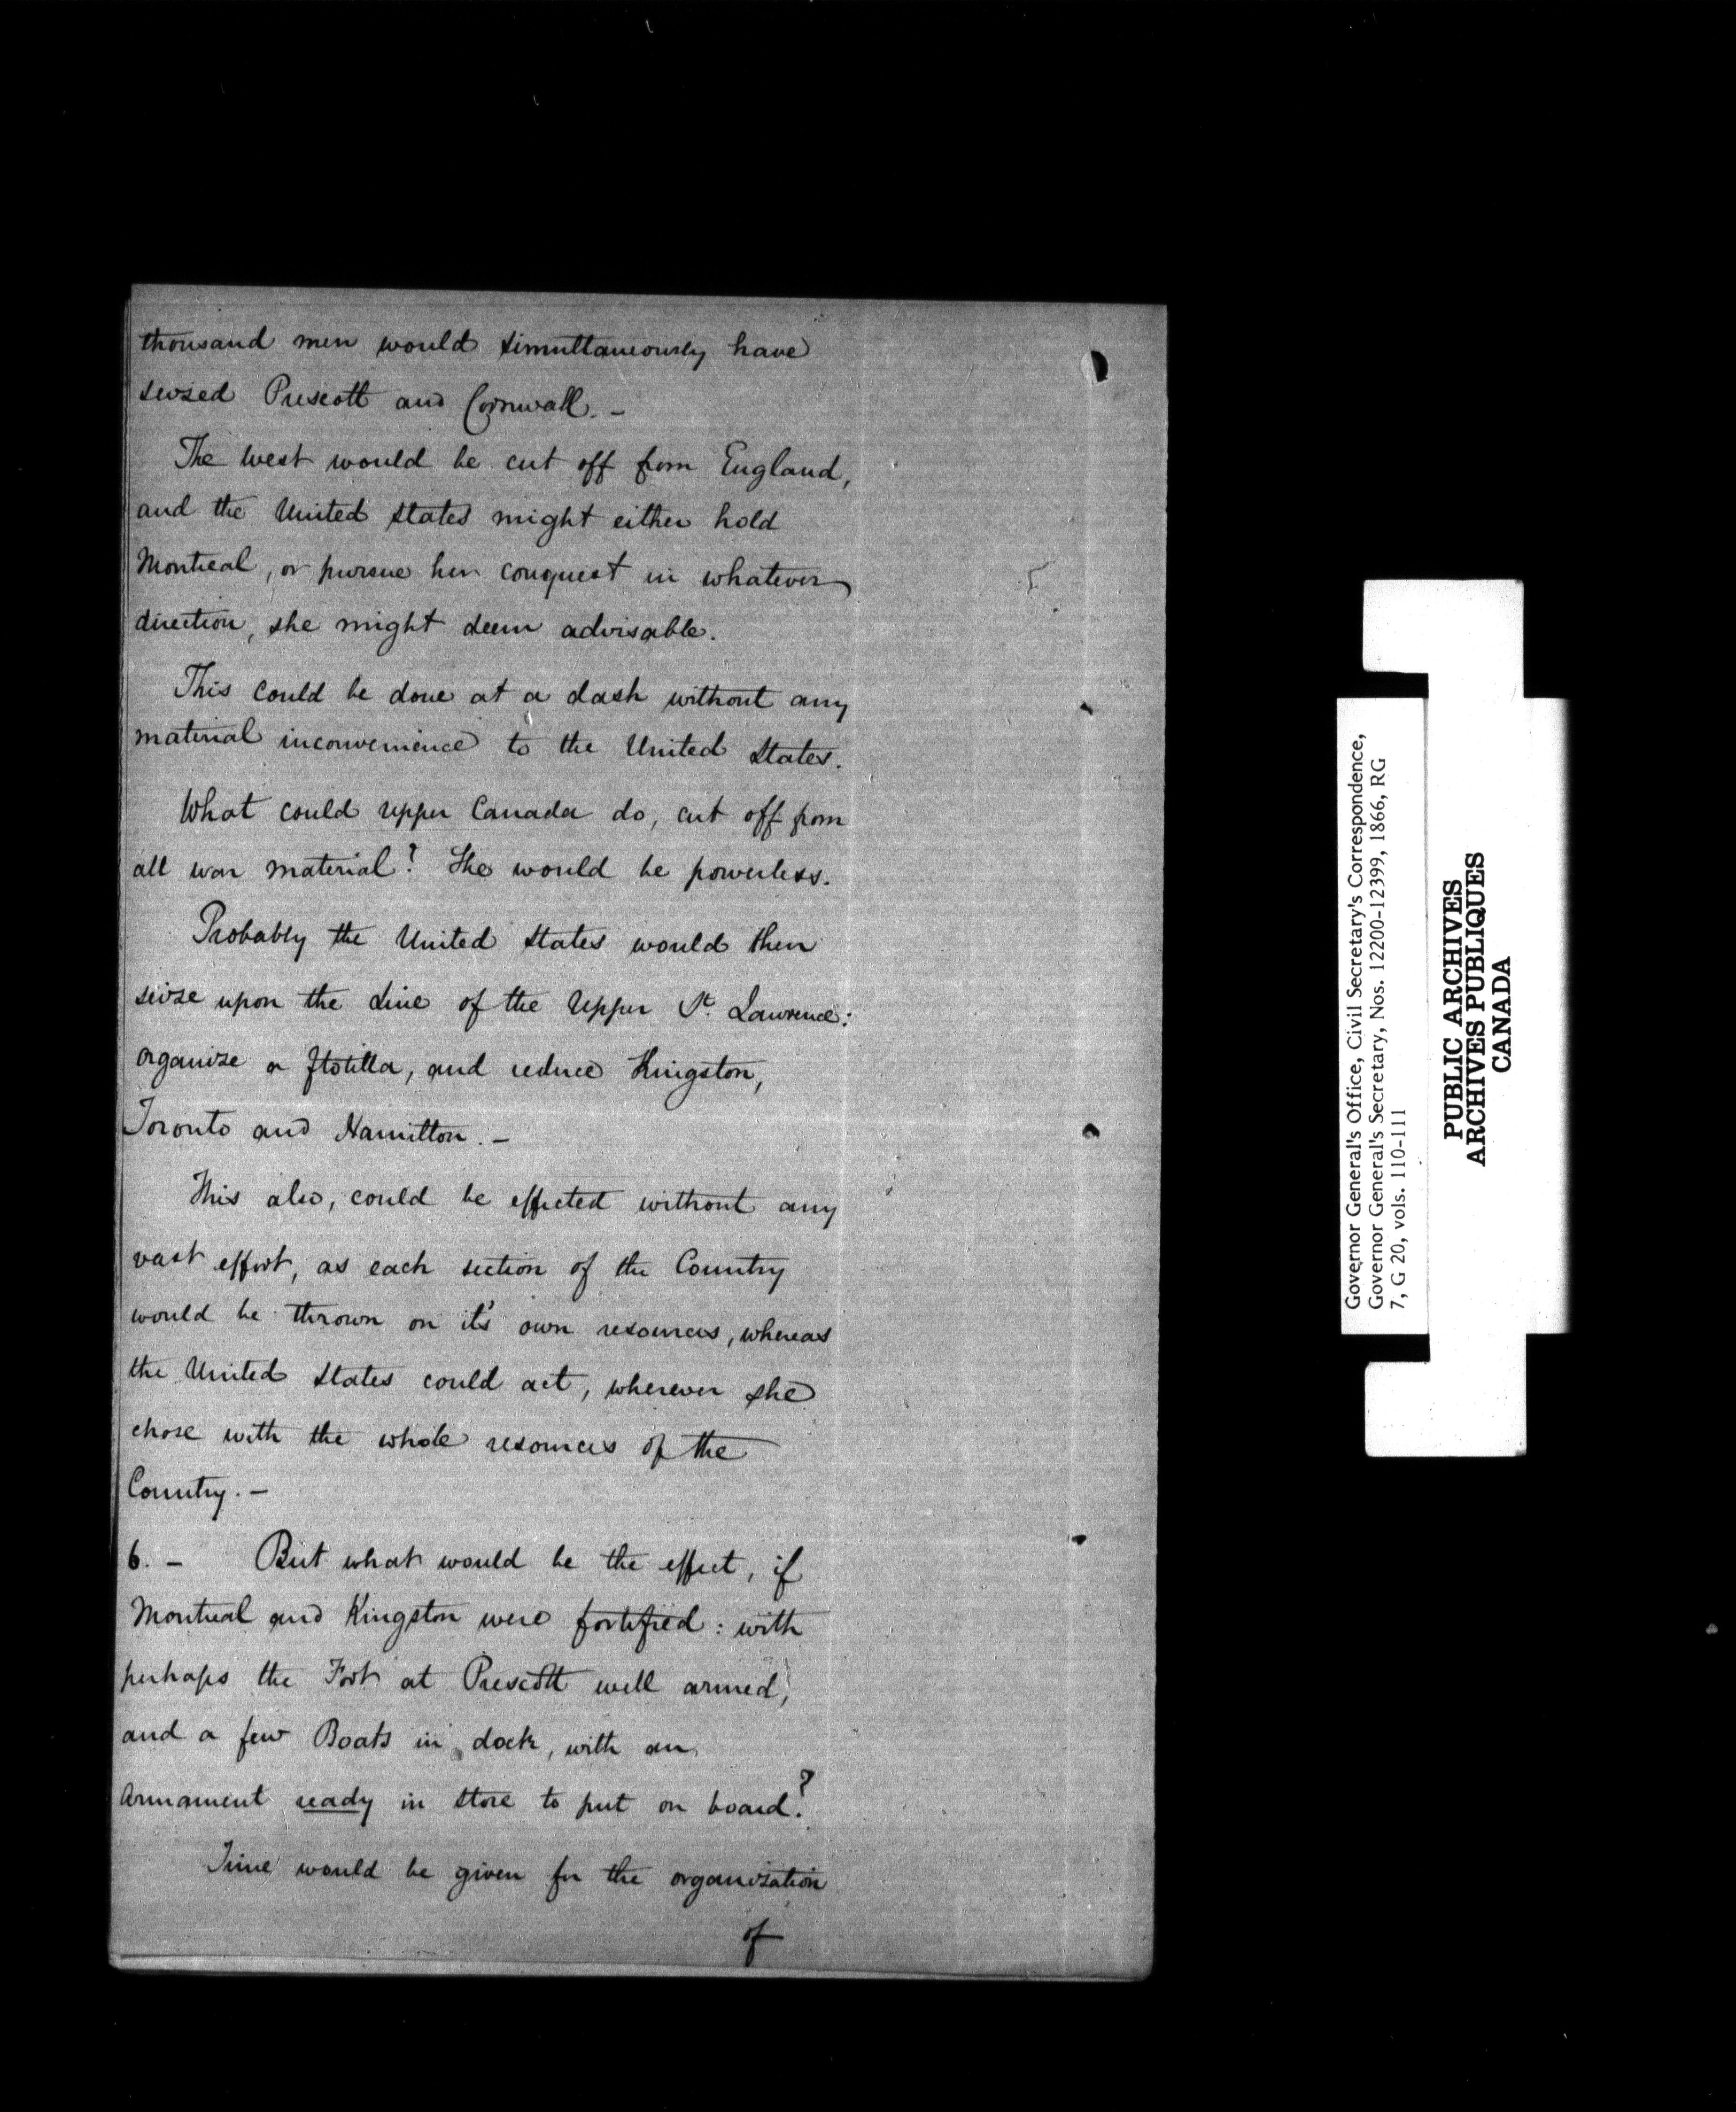 thousand men would simultaneously have
seized Prescott and Cornwall. –
The West would be cut off from England,
and the United States might either hold
Montreal, or pursue her conquest in whatever
direction, she might deem advisable.
This could be done at a dash without any
material inconvenience to the United States.
What could upper Canada do, cut off from
all war material? She would be powerless.
Probably the United States would then
seize upon the Line of the Upper St. Lawrence:
organize a flotilla, and reduce Kingston,
Toronto and Hamilton. –
This also, could be effected without any
vast effort, as each section of the Country
would be thrown on it's own resources, whereas
the United States could act, wherever she
chose with the whole resources of the
Country. –
6. – But what would be the effect, if
Montreal and Kingston were fortified: with
perhaps the Fort at Prescott well armed,
and a few Boats in dock, with an
Armament ready in store to put on board?
Time would be given for the organization
of
Governor General's Office, Civil Secretary's Correspondence,
Governor General's Secretary, Nos. 12200-12399, 1866, RG
7, G 20, vols. 110-111
PUBLIC ARCHIVES
ARCHIVES PUBLIQUES
CANADA